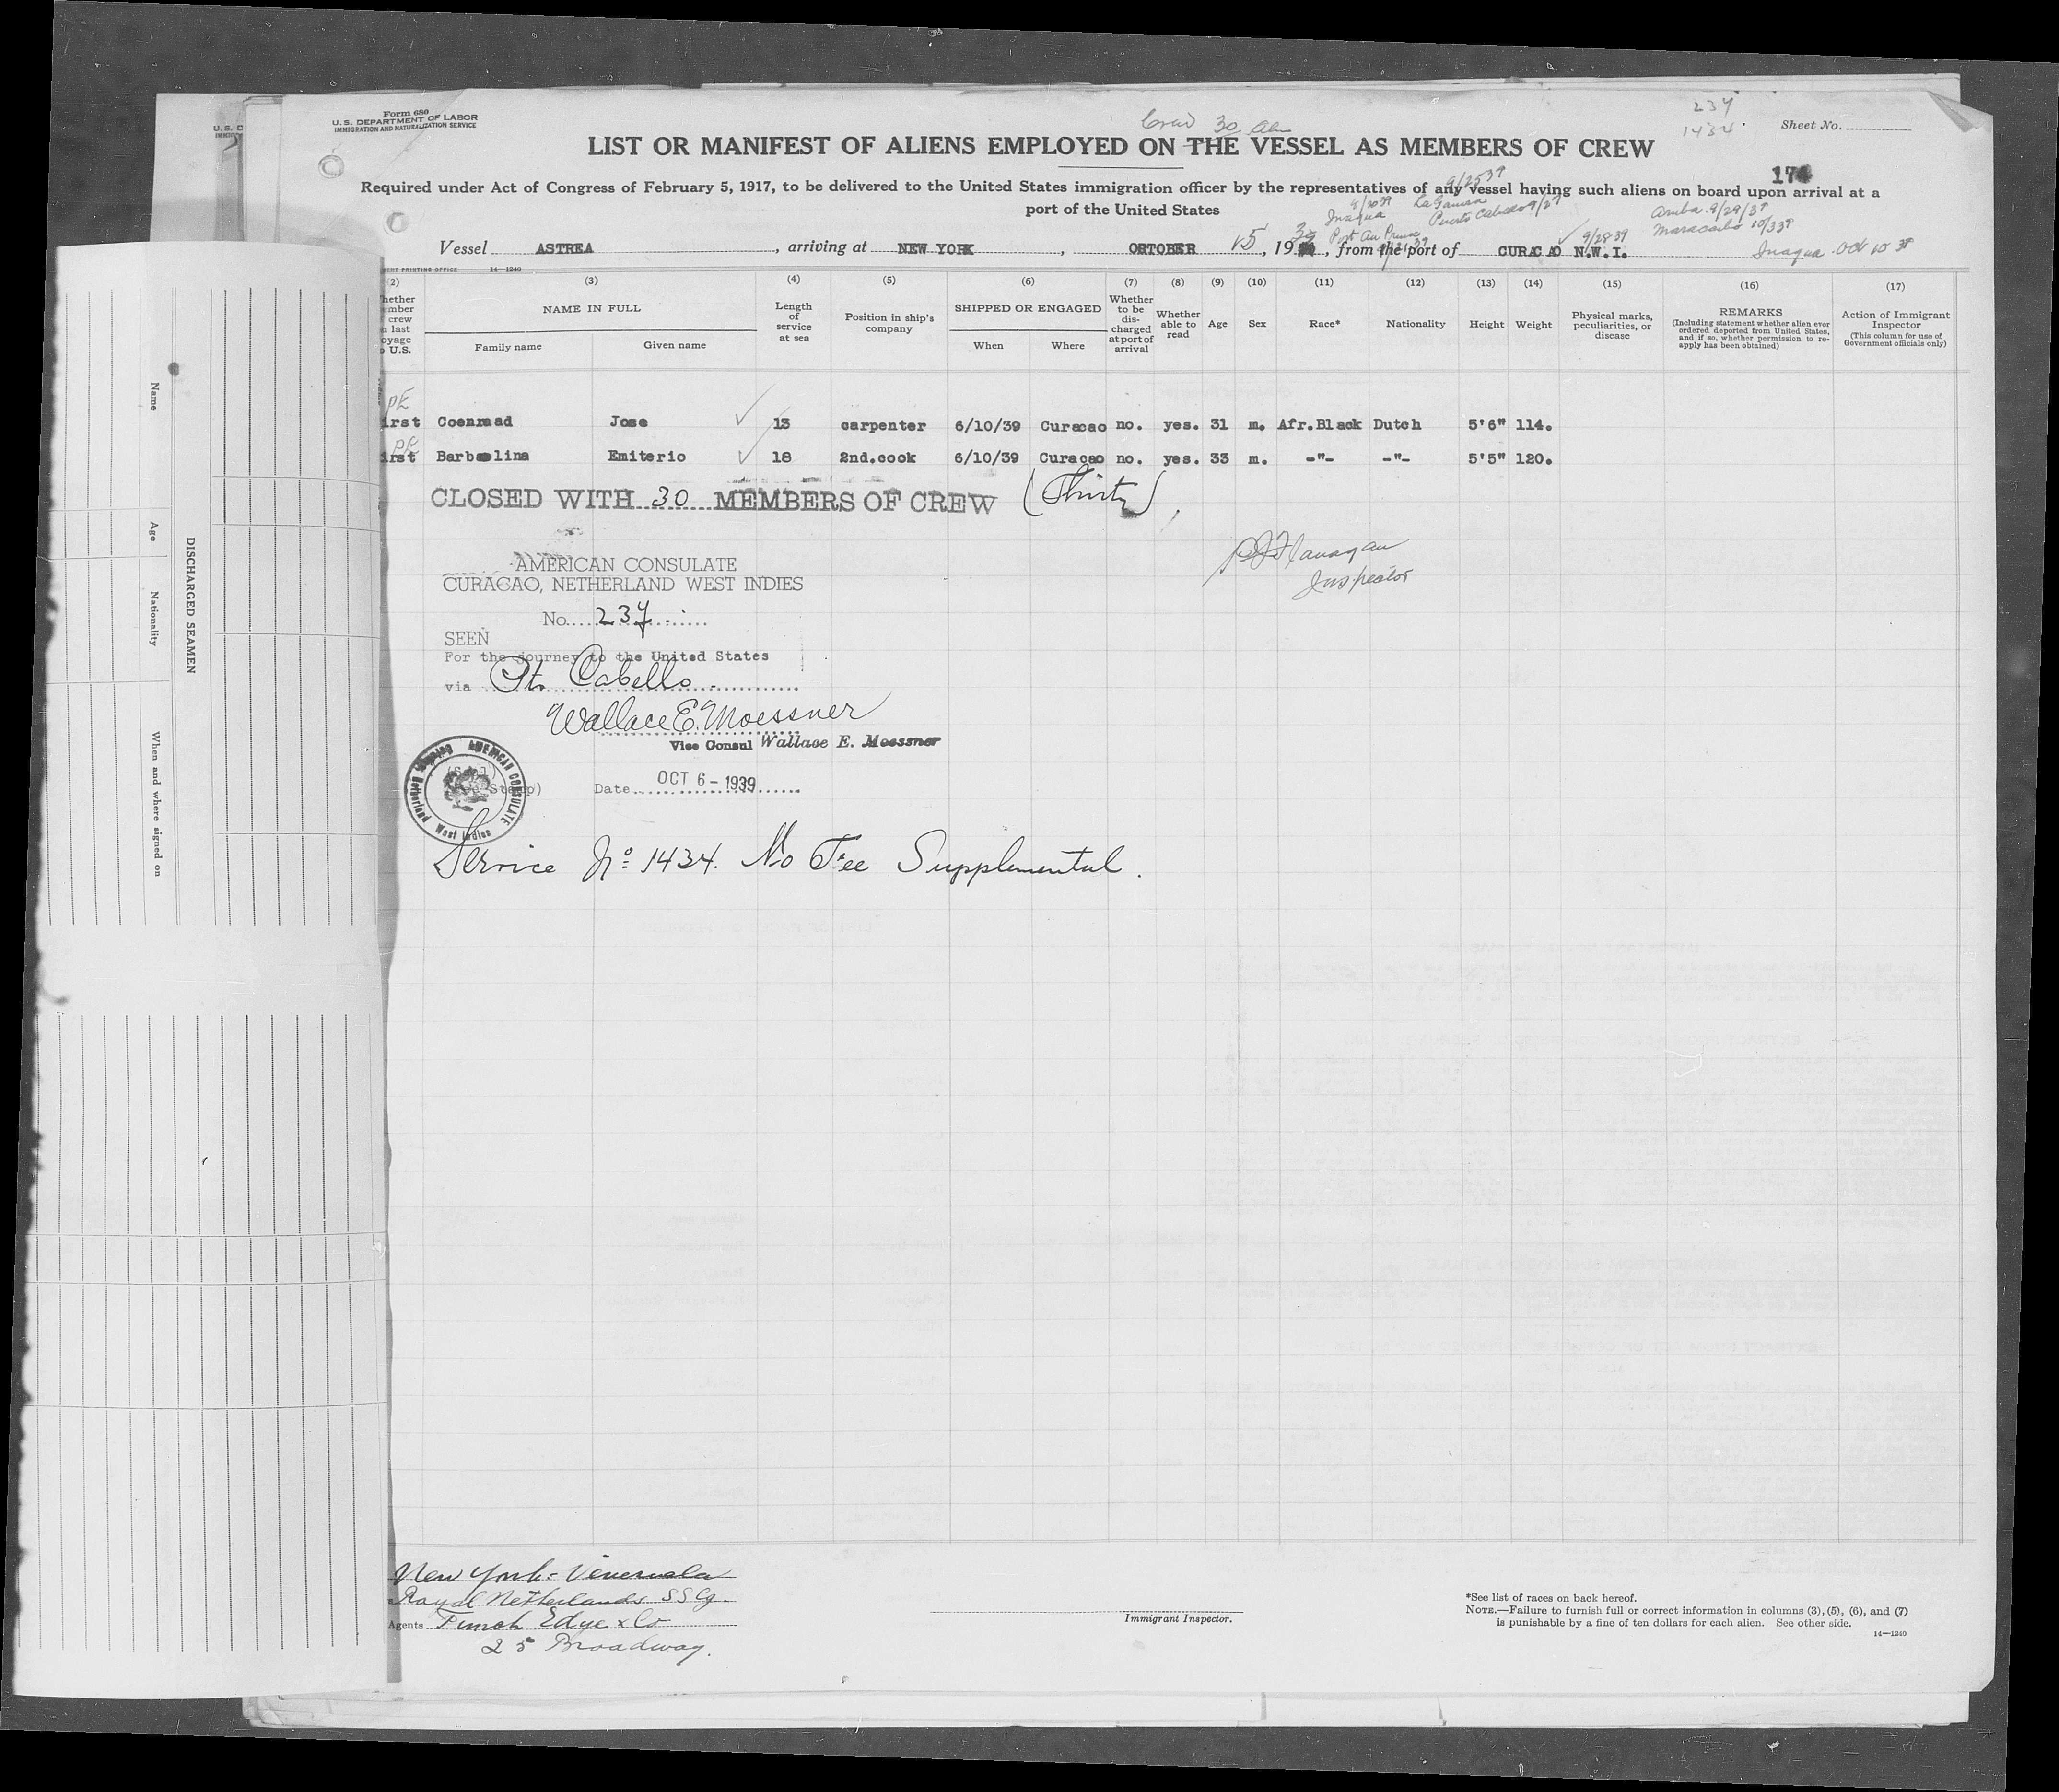 Form 680
U.S. DEPARTMENT OF LABOR
IMMIGRATION AND NATURALIZATION SERVICE
Crew 30 Alm
237
1434
Sheet No.
LIST OR MANIFEST OF ALIENS EMPLOYED ON THE VESSEL AS MEMBERS OF CREW
174
Required under Act of Congress of February 5, 1917, to be delivered to the United States immigration officer by the representatives of any vessel having such aliens on board upon arrival at a
port of the United States
9/25 39
Inagua
Puerto Cabello 9/27
Aruba 9/29/39
Maracaibo 10/3 39
Port Au Prince
9/28 39
Inagua Oct 10 39
Vessel ASTREA, arriving at NEW YORK, ORTOBER 15, 1939, from the port of CURACAO N.W.I.
14—1240
(2) (3) (4) (5) (6) (7) (8) (9) (10) (11) (12) (13) (14) (15) (16) (17)
NAME IN FULL
Family name Given name
Length of service at sea
Position in ship's company
SHIPPED OR ENGAGED
When Where
Whether to be discharged at port of arrival
Whether able to read
Age Sex Race* Nationality Height Weight
Physical marks, peculiarities, or disease
REMARKS
(Including statement whether alien ever ordered deported from United States, and if so, whether permission to reapply has been obtained)
Action of Immigrant Inspector
(This column for use of Government officials only)
PE
irst Coenraad Jose 13 carpenter 6/10/39 Curacao no. yes. 31 m. Afr.Black Dutch 5'6" 114.
PE
irst Barbolina Emiterio 18 2nd.cook 6/10/39 Curacao no. yes. 33 m. -"- -"- 5'5" 120.
CLOSED WITH 30 MEMBERS OF CREW (Thirty)
PJ Flanagan
Inspector
AMERICAN CONSULATE
CURACAO, NETHERLAND WEST INDIES
No. 237
SEEN
For the journey to the United States
via Pto Cabello
Wallace E. Moessner
Vice Consul Wallace E. Moessner
AMERICAN CONSULATE
Netherland West Indies
Date OCT 6 - 1939
Service No 1434. No Fee Supplemental.
Name
Age
Nationality
When and where signed on
DISCHARGED SEAMEN
New York - Venezuela
Royal Netherlands SS Co.
Agents Funch Edye & Co
25 Broadway.
Immigrant Inspector.
*See list of races on back hereof.
NOTE.—Failure to furnish full or correct information in columns (3), (5), (6), and (7)
is punishable by a fine of ten dollars for each alien. See other side.
14—1240